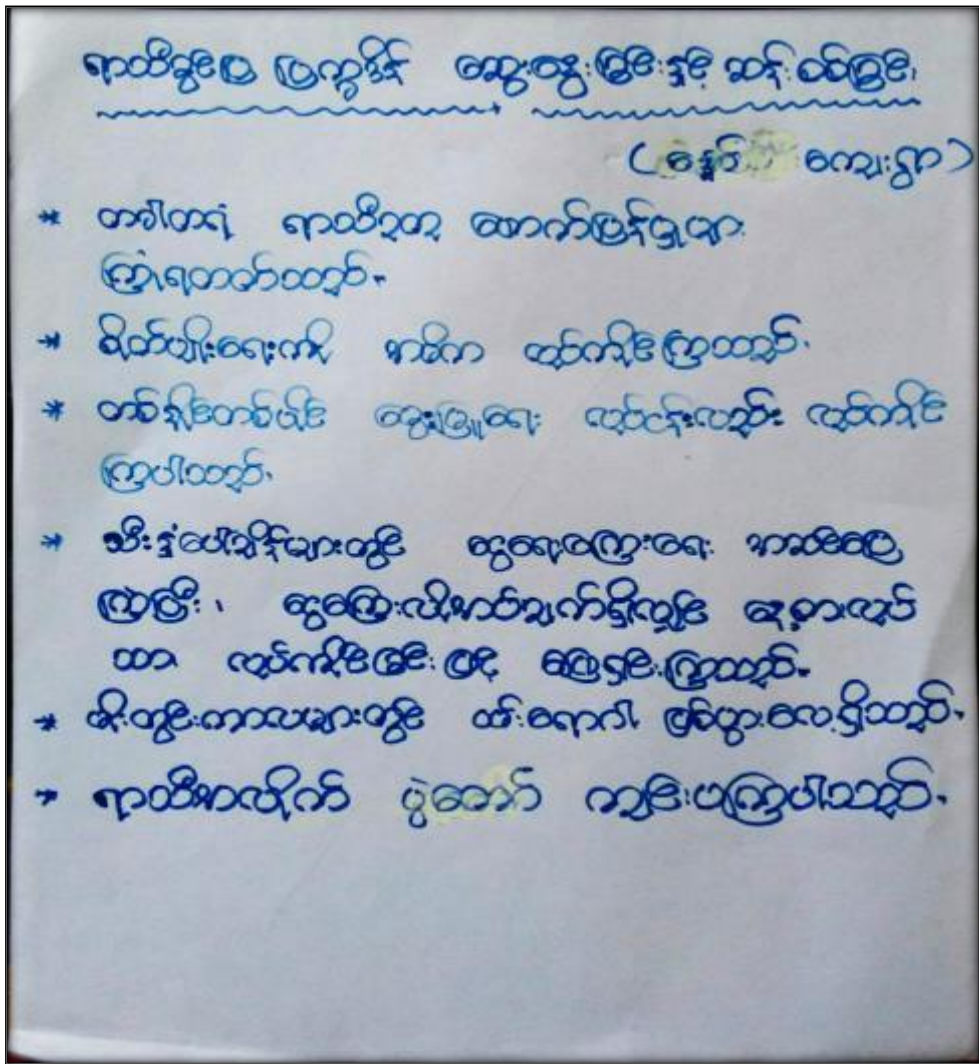 ရာသီခွင်ပြ ပြက္ခဒိန် ဆွေးနွေးခြင်းနှင့် ဆန်းစစ်ခြင်း
ကျေးရွာ)
* တခါတရံ ရာသီဥတု ဖောက်ပြန်မှုများ
ကြုံရတတ်သည်။
* စိုက်ပျိုးရေးကို အဓိက လုပ်ကိုင်ကြသည်။
* တစ်နိုင်တစ်ပိုင် မွေးမြူရေး လုပ်ငန်းလည်း လုပ်ကိုင်
ကြပါသည်။
* သီးနှံပေါ်ချိန်များတွင် ငွေရေးကြေးရေး အဆင်ပြေ
ကြပြီး၊ ငွေကြေးလိုအပ်ချက်ရှိလျှင် နေ့စားလုပ်
သာ လုပ်ကိုင်ခြင်းဖြင့် ဖြေရှင်းကြသည်။
* မိုးတွင်းကာလများတွင် ရောဂါ ဖြစ်ပွားလေ့ရှိသည်။
* ရာသီအလိုက် ပွဲတော် ကျင်းပကြပါသည်။